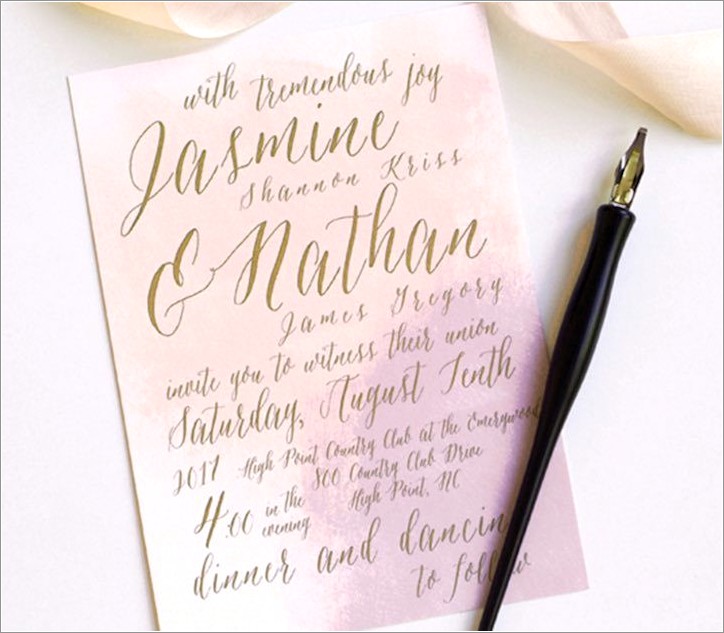 with tremendous joy
Jasmine
Shannon Kriss
& Nathan
James Gregory
invite you to witness their union
Saturday, August Tenth
2017 High Point Country Club at the Emerywood
800 Country Club Drive
High Point, NC
4:00 in the
evening
dinner and dancin
to follow